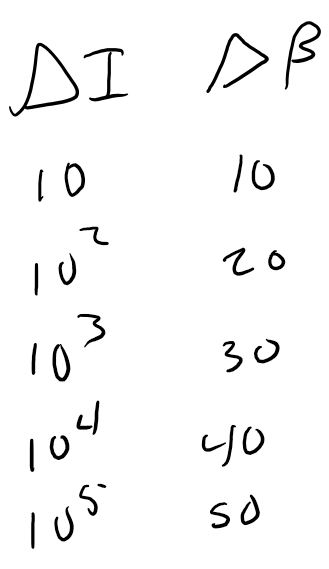 ΔI Δβ
10 10
10² 20
10³ 30
10⁴ 40
10⁵ 50